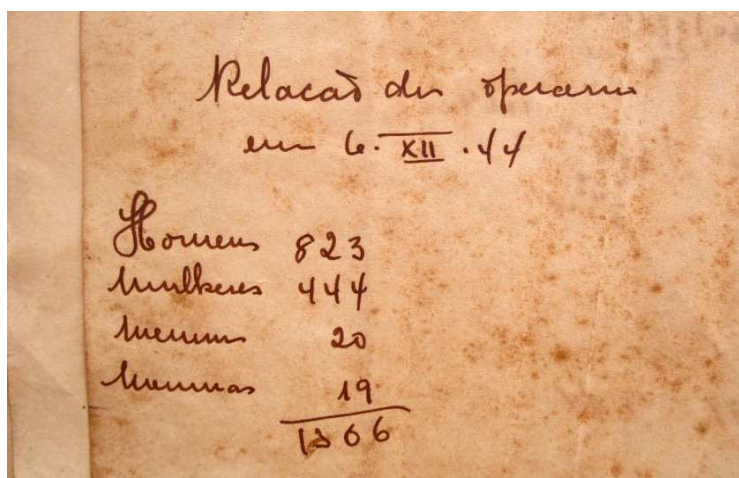 Relacão dos operarios
em 6. XII .44
Homens 823
Mulheres 444
Meninos 20
Meninas 19
1306